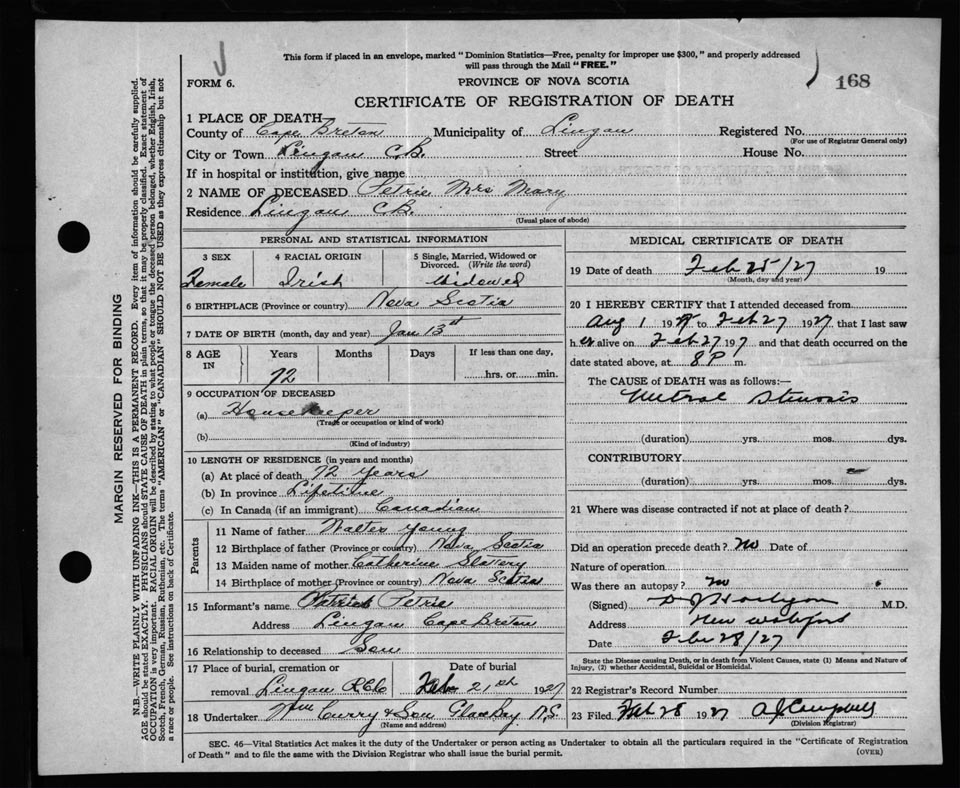 This form if placed in an envelope, marked "Dominion Statistics—Free, penalty for improper use $300," and properly addressed
will pass through the Mail "FREE."
FORM 6. PROVINCE OF NOVA SCOTIA 168
CERTIFICATE OF REGISTRATION OF DEATH
1 PLACE OF DEATH
County of Cape Breton Municipality of Lingan Registered No.
(For use of Registrar General only)
City or Town Lingan C.B. Street House No.
If in hospital or institution, give name
2 NAME OF DECEASED Petrie Mrs Mary
Residence Lingan C.B.
(Usual place of abode)
PERSONAL AND STATISTICAL INFORMATION
3 SEX 4 RACIAL ORIGIN 5 Single, Married, Widowed or
Divorced. (Write the word)
Female Irish Widowed
6 BIRTHPLACE (Province or country) Nova Scotia
7 DATE OF BIRTH (month, day and year) Jan 13th
8 AGE IN Years Months Days If less than one day,
72 hrs. or min.
9 OCCUPATION OF DECEASED
(a) Housekeeper
(Trade or occupation or kind of work)
(b)
(Kind of industry)
10 LENGTH OF RESIDENCE (in years and months)
(a) At place of death 72 years
(b) In province Lifetime
(c) In Canada (if an immigrant) Canadian
Parents
11 Name of father Walter Young
12 Birthplace of father (Province or country) Nova Scotia
13 Maiden name of mother Catherine Slatery
14 Birthplace of mother (Province or country) Nova Scotia
15 Informant's name Patrick Petrie
Address Lingan Cape Breton
16 Relationship to deceased Son
17 Place of burial, cremation or Date of burial
removal Lingan 1927
18 Undertaker Wm Curry & Son Glace Bay N.S.
(Name and address)
MEDICAL CERTIFICATE OF DEATH
19 Date of death Feb 25/27 19
(Month, day and year)
20 I HEREBY CERTIFY that I attended deceased from
Aug 1 19 to Feb 27 1927 that I last saw
her alive on Feb 27 19 7 and that death occurred on the
date stated above, at 8 P m.
The CAUSE of DEATH was as follows:—
Mitral Stenosis
(duration) yrs. mos. dys.
CONTRIBUTORY
(duration) yrs. mos. dys.
21 Where was disease contracted if not at place of death?
Did an operation precede death? no Date of
Nature of operation
Was there an autopsy? no
(Signed) M.D.
Address New Waterford
Date Feb 28/27
State the Disease causing Death, or in death from Violent Causes, state (1) Means and Nature of
Injury, (2) whether Accidental, Suicidal or Homicidal.
22 Registrar's Record Number
23 Filed Feb 28 1927 A J Campbell
(Division Registrar)
SEC. 46—Vital Statistics Act makes it the duty of the Undertaker or person acting as Undertaker to obtain all the particulars required in the "Certificate of Registration
of Death" and to file the same with the Division Registrar who shall issue the burial permit. (OVER)
MARGIN RESERVED FOR BINDING
N.B.—WRITE PLAINLY WITH UNFADING INK—THIS IS A PERMANENT RECORD. Every item of information should be carefully supplied.
AGE should be stated EXACTLY. PHYSICIANS should STATE CAUSE OF DEATH in plain terms, so that it may be properly classified. Exact statement of
OCCUPATION is very important. RACIAL ORIGIN will be described by stating to what people or tongue the deceased person belonged, whether English, Irish,
Scotch, French, German, Russian, Ruthenian, etc. The terms "AMERICAN" or "CANADIAN" SHOULD NOT BE USED as they express citizenship but not
a race or people. See instructions on back of Certificate.